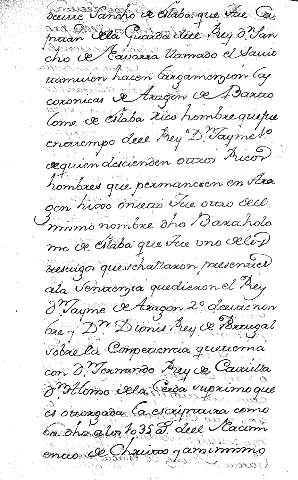 deuric Sancho de eslaba que fue Ca-
pitan de la Guarda del Rey Dn San
cho de Navarra llamado el Savio
tamvien hacen largamenzion las
coronicas de Aragon de Barto
lome de eslaba Rico hombre que fue
en tiempo del Rey Dn Jayme lo
de quien descienden otros Ricos
hombres que permanesen en Ara
gon hijo o nieto fue otro del
mismo nombre dho Bartholo
me de eslaba que fue uno de los
testigos que se hallaron presentes
a la Sentenzia que dieron el Rey
Dn Jayme de Aragon 2º de este nom
bre y Dn Dionis Rey de Portugal
sobre la Competencia que tenia
con Dn Fernando Rey de Castilla
Dn Alonso de la Cerda su primo que
es otorgada la escriptura como
ba dho a los 1035 a. del Nacim
iento de Christo y asi mismo